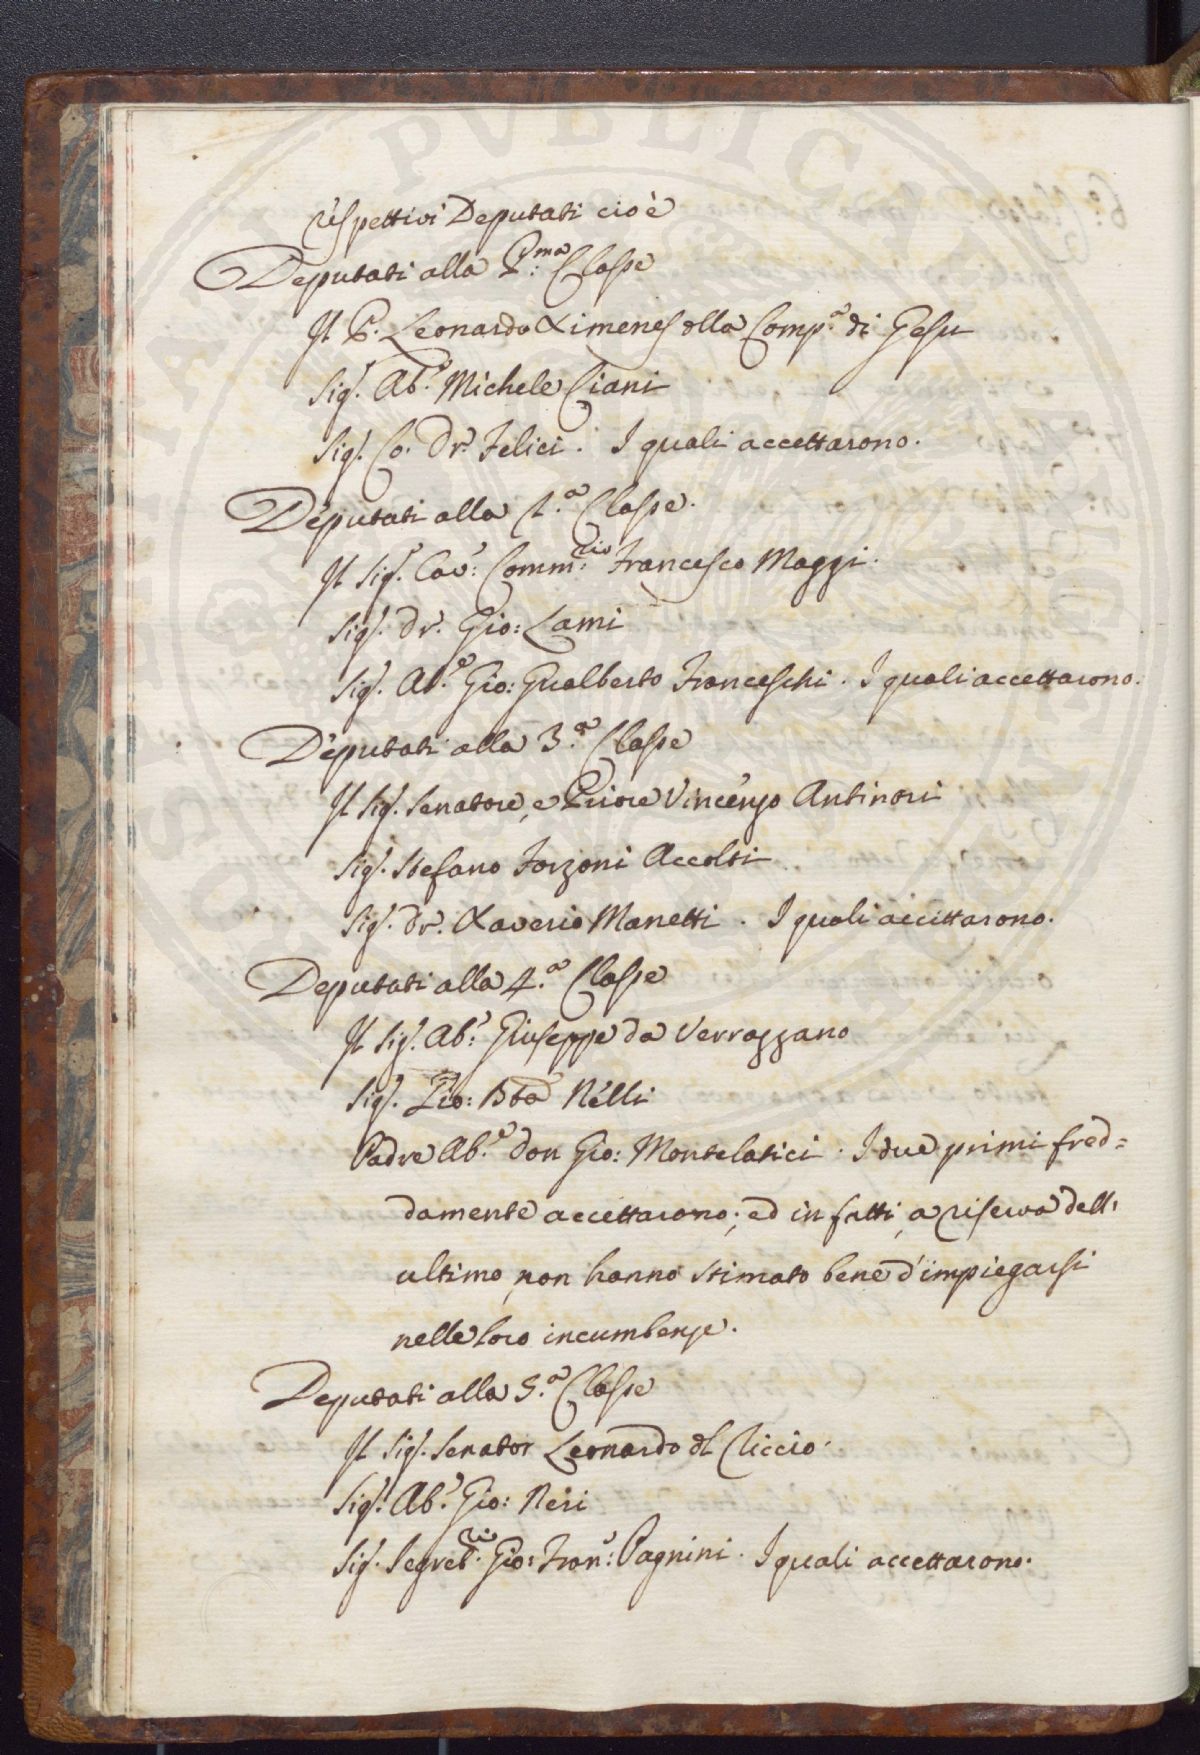 respettivi Deputati cioè
Deputati alla P:ma Classe
Il P. Leonardo Ximenes dlla Comp.a di Gesu
Sig.r Ab.e Michele Ciani
Sig.r Co. Dr. Felici. I quali accettarono.
Deputati alla 2.a Classe.
Il Sig.r Cav.e: Comm:rio Francesco Maggi.
Sig.r Dr. Gio: Lami
Sig.r Ab.e Gio: Gualberto Franceschi. I quali accettarono.
Deputati alla 3.a Classe
Il Sig.r Senatore, e Priore Vincenzo Antinori
Sig.r Stefano Forzoni Accolti
Sig.r Dr. Xaverio Manetti. I quali accettarono.
Deputati alla 4.a Classe
Il Sig.r Ab.e: Giuseppe da Verrazzano
Sig.r Gio: Bta Nelli
Padre Ab.e Don Gio: Montelatici. I due primi fred=
damente accettarono; ed in fatti, a riserva dell'
ultimo, non hanno stimato bene d'impiegarsi
nelle loro incumbenze.
Deputati alla 5.a Classe
Il Sig.r Senator Leonardo dl Riccio.
Sig.r Ab.e Gio: Neri
Sig.r Segret.rio Gio: Fran.o: Pagnini. I quali accettarono.